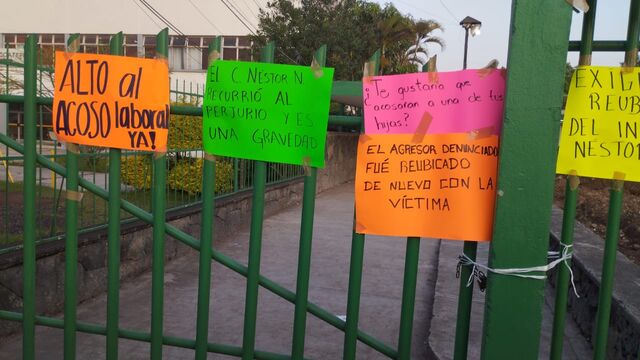 ALTO al
ACOSO laboral
YA!
EL C. NESTOR N
RECURRIÓ AL
PERJURIO Y ES
UNA GRAVEDAD
¿Te gustaria que
acosaran a una de tus
hijas?
EL AGRESOR DENUNCIADO
FUÉ REUBICADO
DE NUEVO CON LA
VÍCTIMA
EXI
REUB
DEL IN
NESTO